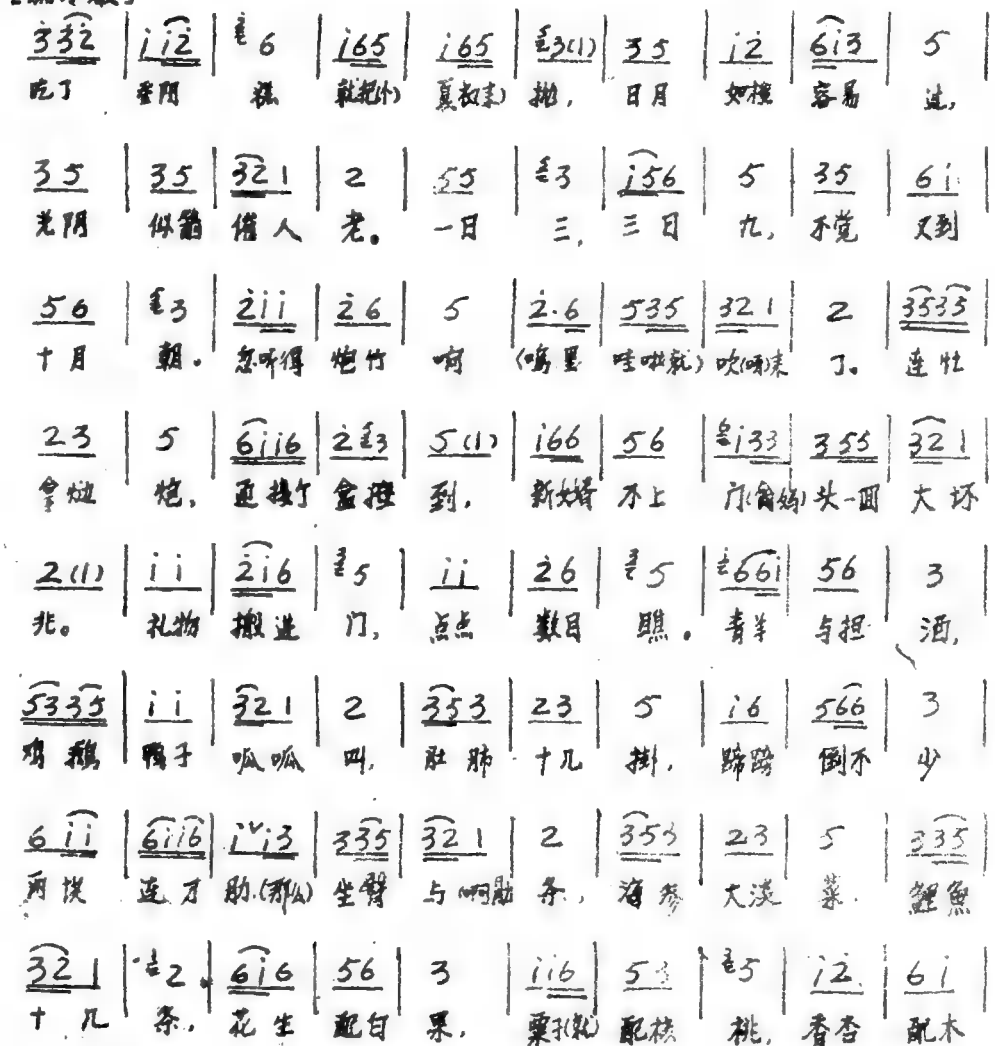 3 3 2 | i i 2 | 6 | i 6 5 | i 6 5 | 3 (1) | 3 5 | i 2 | 6 i 3 | 5
吃了 重阳 糕 就把(小) 抛, 日月 如梭 容易 过,
3 5 | 3 5 | 3 2 1 | 2 | 5 5 | 3 | i 5 6 | 5 | 3 5 | 6 i
光阴 似箭 催人 老。 一日 三, 三日 九, 不觉 又到
5 6 | 3 | 2 i i | 2 6 | 5 | 2·6 | 5 3 5 | 3 2 1 | 2 | 3 5 3 5
十月 朝。 忽听得 炮竹 响 (呜里 哇啦就) 吹 来 了。 连忙
2 3 | 5 | 6 i i 6 | 2 3 | 5 (1) | i 6 6 | 5 6 | i 3 3 | 3 5 5 | 3 2 1
拿 炮, 盒 到, 新女婿 不上 门 头一回 大 坏
2 (1) | i i | 2 i 6 | 5 | i i | 2 6 | 5 | 6 6 i | 5 6 | 3
兆。 礼物 搬进 门, 点点 数目 瞧。 青羊 与担 酒,
5 3 3 5 | i i | 3 2 1 | 2 | 3 5 3 | 2 3 | 5 | i 6 | 5 6 6 | 3
鸡鹅 鸭子 呱呱 叫, 肚肺 十几 掛, 蹄 倒不 少
6 i i | 6 i i 6 | i i 3 | 3 3 5 | 3 2 1 | 2 | 3 5 3 | 2 3 | 5 | 3 3 5
两块 连刀 肋(那么) 坐臀 与(啊)肋 条, 海参 大淡 菜. 鲤魚
3 2 1 | 2 | 6 i 6 | 5 6 | 3 | i i 6 | 5 3 | 5 | i 2 | 6 i
十几 条, 花生 配白 果, 栗子(就) 配核 桃, 香杏 配木